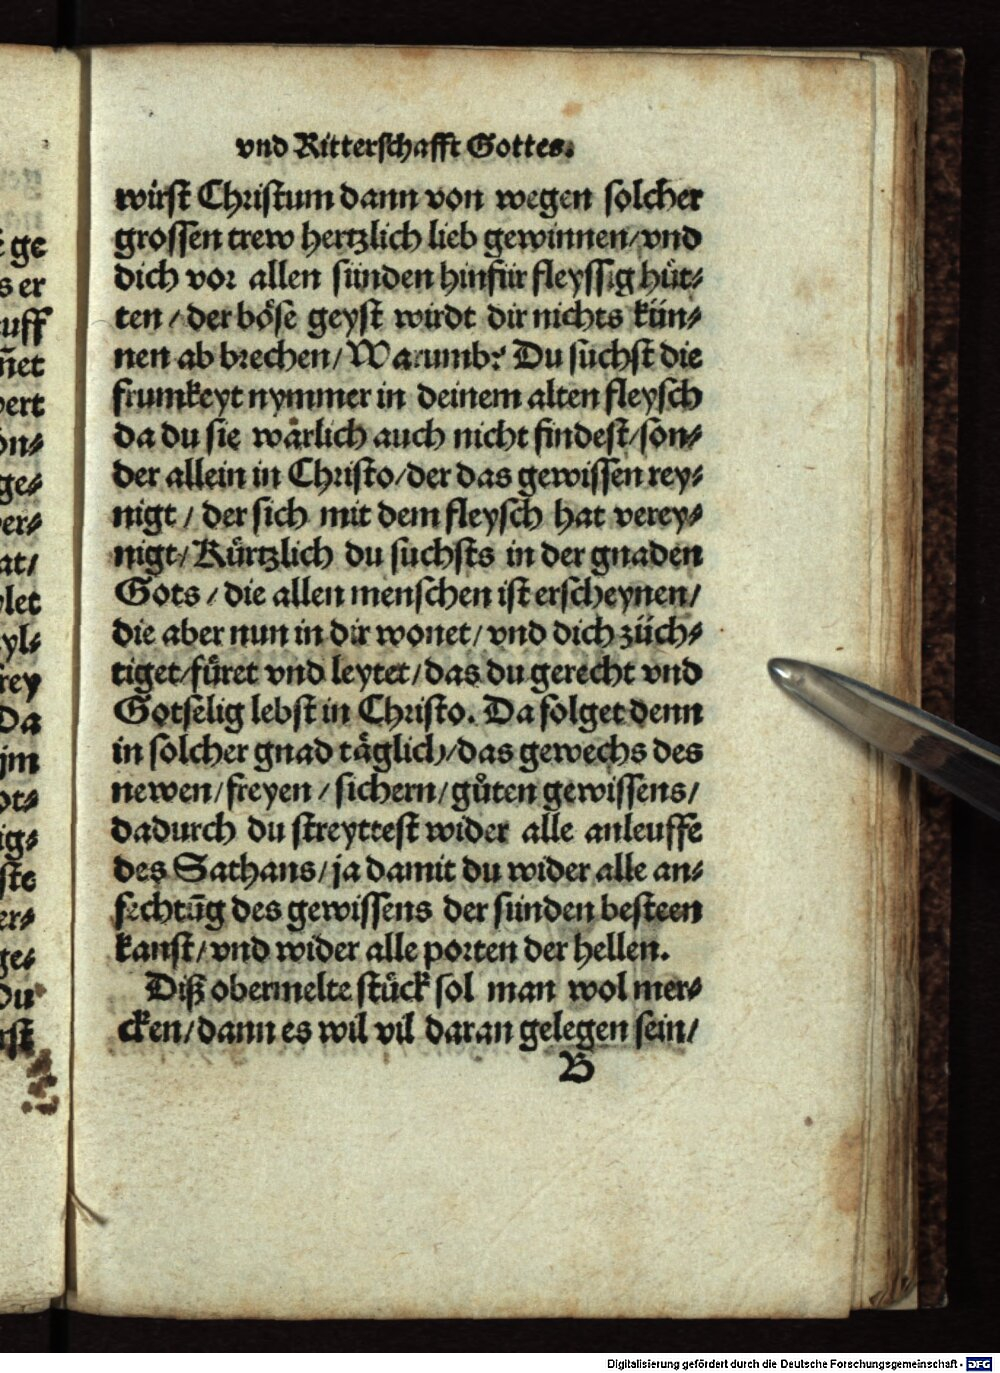 vnd Ritterschafft Gottes.
würst Christum dann von wegen solcher
grossen trew hertzlich lieb gewinnen/vnd
dich vor allen sünden hinfür fleyssig hüt⸗
ten/der böse geyst wirdt dir nichts kün⸗
nen ab brechen/Warumb? Du suchst die
frumkeyt nymmer in deinem alten fleysch
da du sie wärlich auch nicht findest/son⸗
der allein in Christo/der das gewissen rey⸗
nigt/der sich mit dem fleysch hat verey⸗
nigt/Kürtzlich du suchsts in der gnaden
Gots/die allen menschen ist erscheynen/
die aber nun in dir wonet/vnd dich züch⸗
tiget/füret vnd leytet/das du gerecht vnd
Gotselig lebst in Christo. Da folget denn
in solcher gnad täglich/das gewechs des
newen/freyen/sichern/gůten gewissens/
dadurch du streyttest wider alle anleuffe
des Sathans/ja damit du wider alle an⸗
fechtūg des gewissens der sünden besteen
kanst/vnd wider alle porten der hellen.
Diß obermelte stück sol man wol mer⸗
cken/dann es wil vil daran gelegen sein/
B
ge
s er
uff
n̄et
ert
on⸗
ge⸗
er⸗
at/
let
yl⸗
rey
Da
jm
ot⸗
ig⸗
ste
er⸗
ge⸗
Du
rst
Digitalisierung gefördert durch die Deutsche Forschungsgemeinschaft - DFG